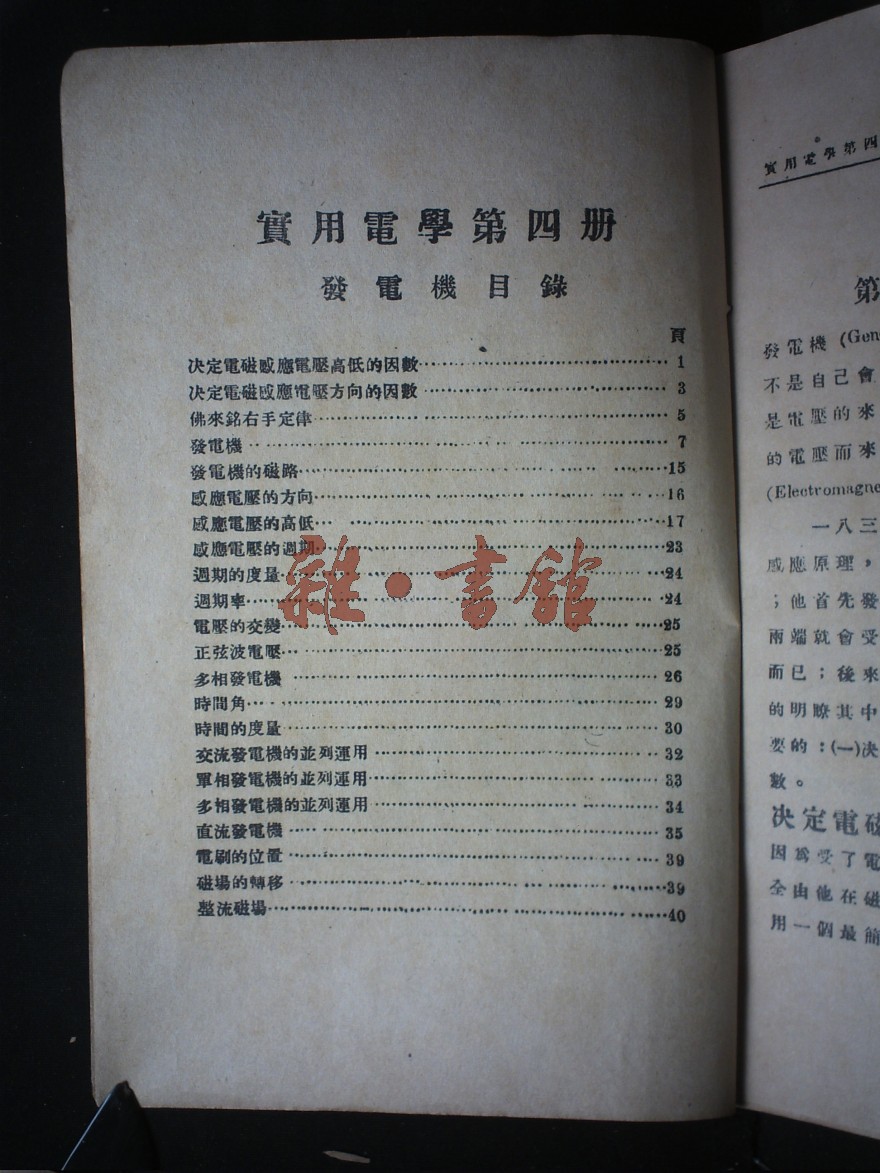 實用電學第四册
發電機目錄
頁
决定電磁感應電壓高低的因數 1
决定電磁感應電壓方向的因數 3
佛來銘右手定律 5
發電機 7
發電機的磁路 15
感應電壓的方向 16
感應電壓的高低 17
感應電壓的週期 23
週期的度量 24
週期率 24
電壓的交變 25
正弦波電壓 25
多相發電機 26
時間角 29
時間的度量 30
交流發電機的並列運用 32
單相發電機的並列運用 33
多相發電機的並列運用 34
直流發電機 35
電刷的位置 39
磁場的轉移 39
整流磁場 40
雜·書館
實用電學第四
第
發電機 (Gen
不是自己會
是電壓的來
的電壓而來
(Electromagne
一八三
感應原理，
；他首先發
兩端就會受
而已；後來
的明瞭其中
要的：(一)决
數。
决定電磁
因爲受了電
全由他在磁
用一個最簡